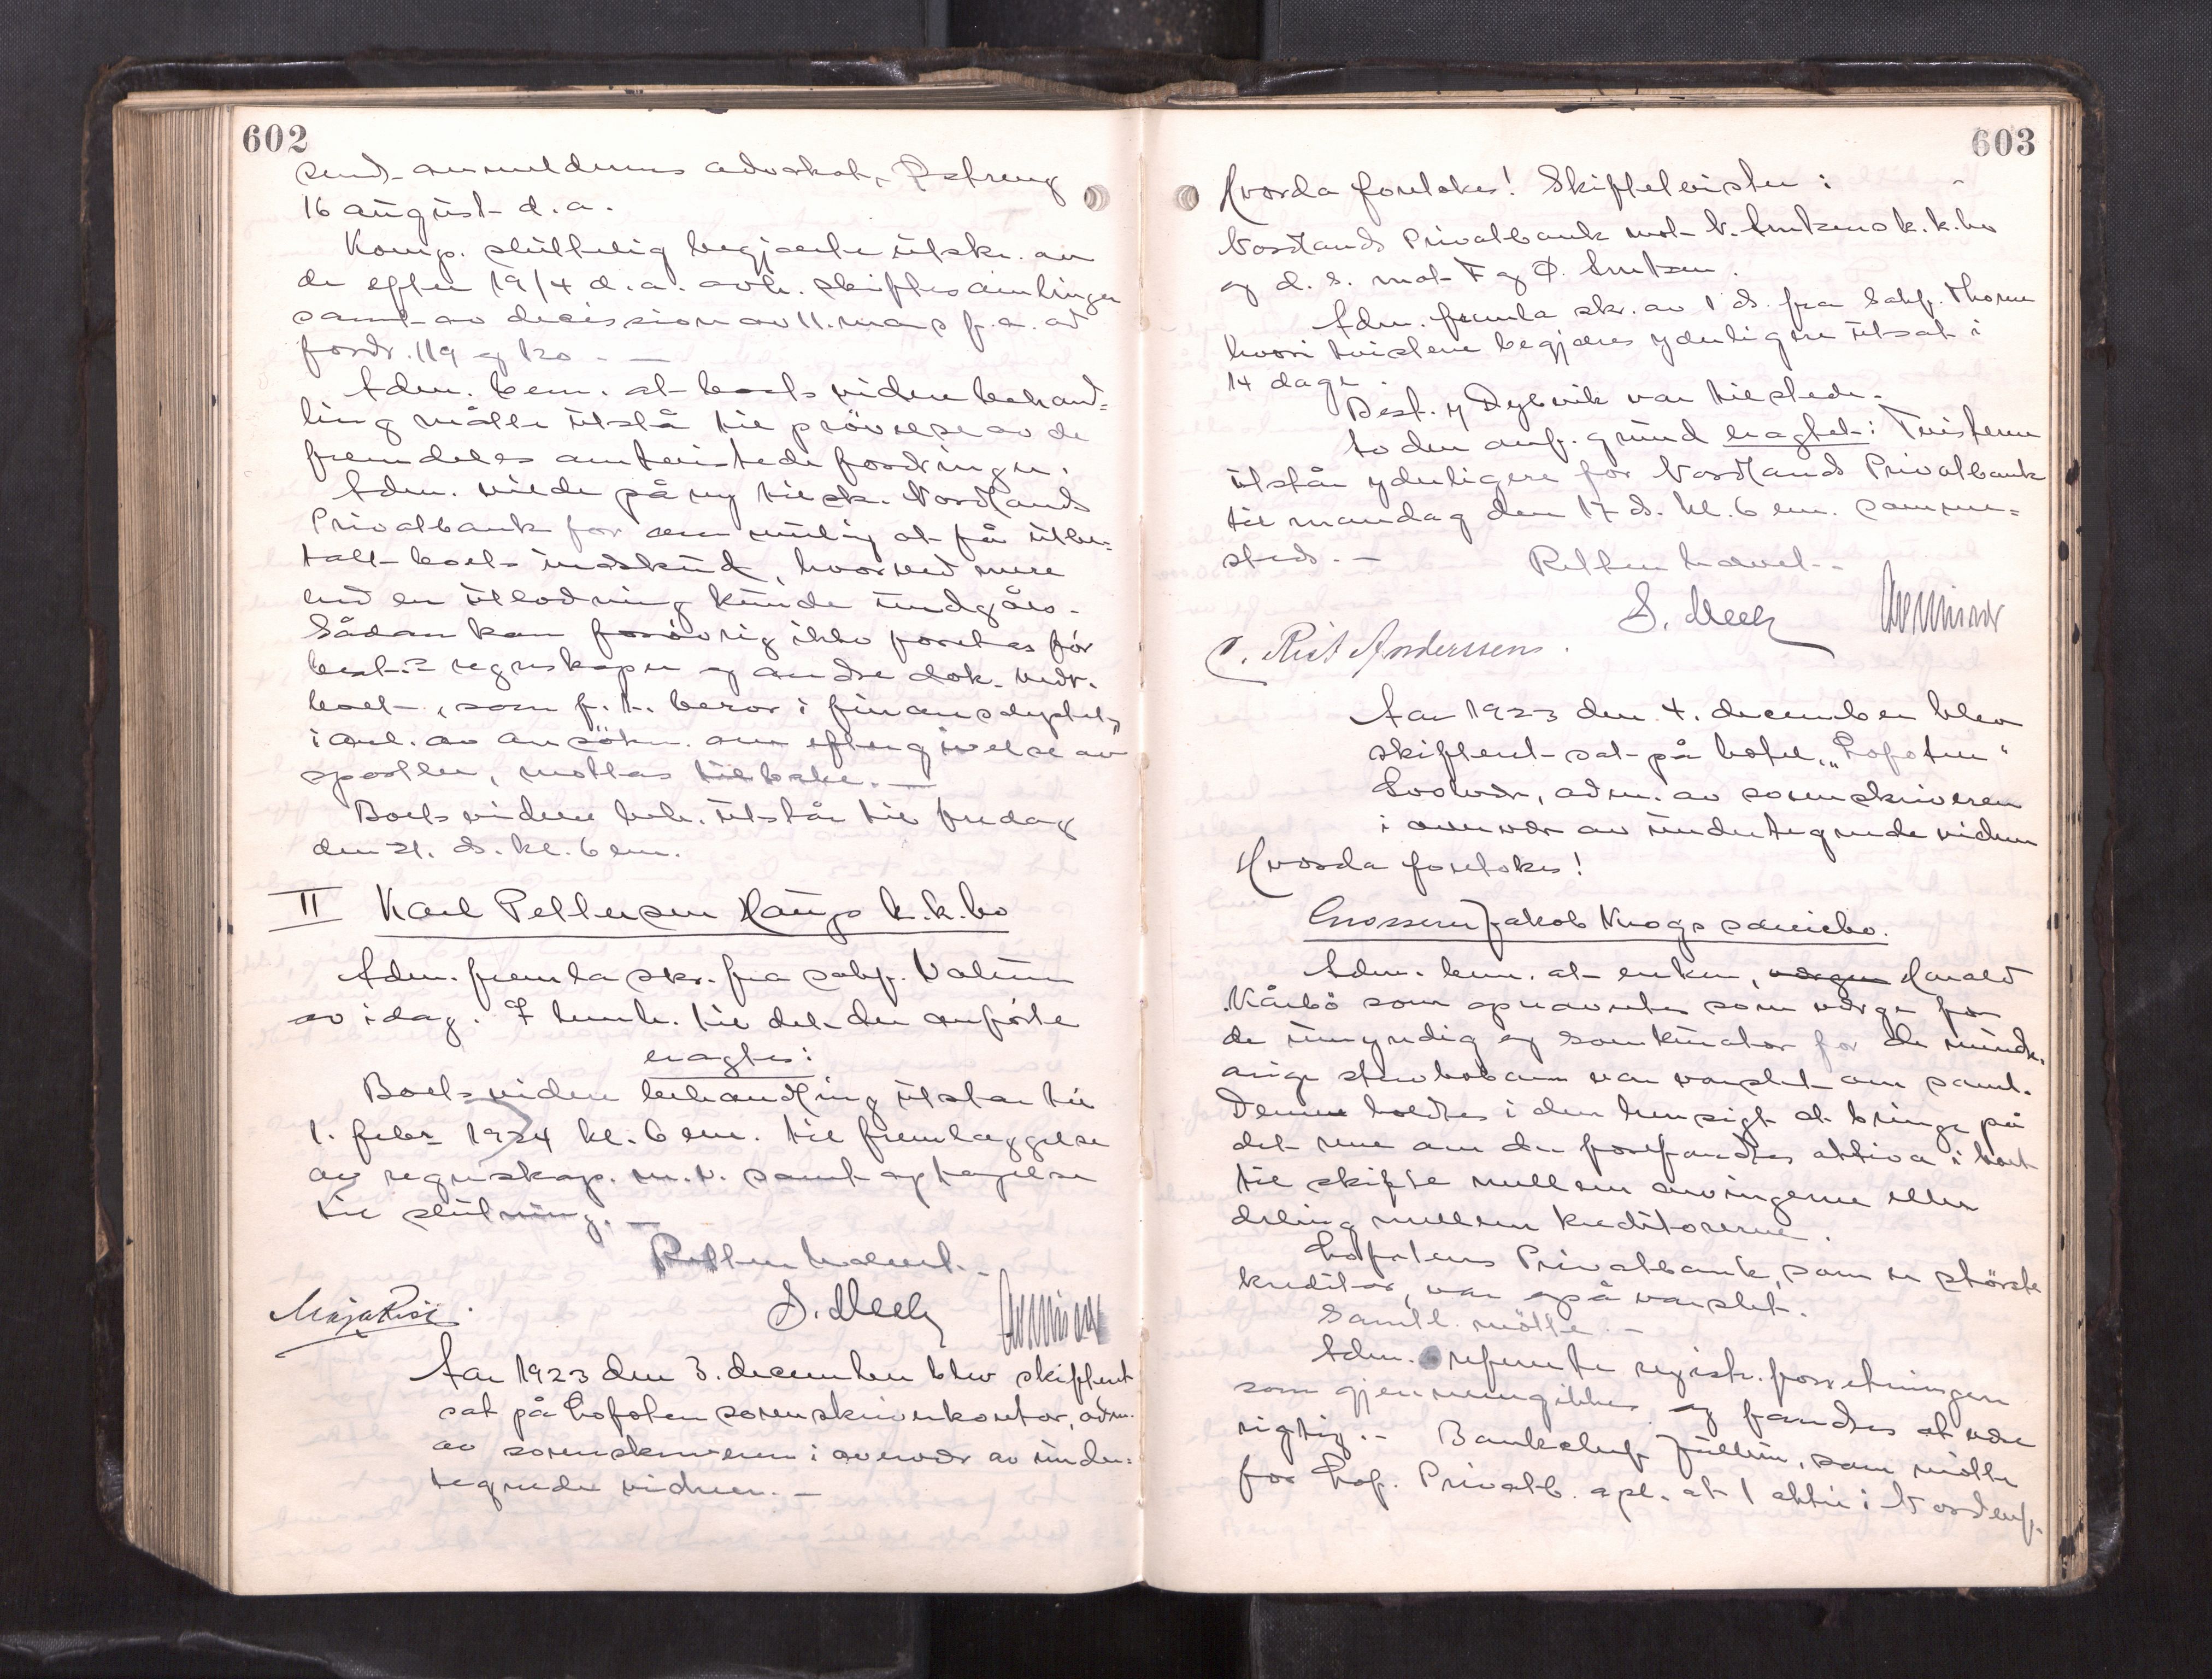 602
send. anmeldernes advokat, Østreng
16 august d. a.
Komp. sluttelig begjærte utskr. av
de efter 19/4 d. a. avh. skiftesamlinger
samt av decission av 11. mars f. a. ad
fordr. 119 og 120. —
Adm. bem. at boets videre behand=
ling måtte utstå til prövelse av de
fremdeles omtvistede fordringer.
Adm. vilde på ny tilsk. Nordlands
Privatbank for om mulig at få utbe=
talt boets indskud, hvorved mere
end en utlodning kunde undgåes.
Sådan kan forövrig ikke foretas för
best.s regnskaper og andre dok. vedr.
boet, som f. t. beror i finansdeptet,
i anl. av ansökn. om eftergivelse av
sportler, mottas tilbake. —
Boets videre beh. utstår til fredag
den 21. ds. kl. 6 em.
II Karl Pettersen Haugs k. k. bo
Adm. fremla skr. fra sakf. Valeur
av idag. I henh. til det der anförte
eragtes:
Boets videre behandling utstår til
1. febr. 1924 kl. 6 em. til fremlæggelse
av regnskap m. v. samt optagelse
til slutning. —
Retten hævet. —
Maja Risø. S. Mech
Aar 1923 den 3. december blev skifteret
sat på Lofoten sorenskriverkontor, adm.
av sorenskriveren i overvær av under=
tegnede vidner. —
603
Hvorda foretokes! Skiftetvister:
Nordlands Privatbank mot N. Arntzens k. k. bo
og d. s. mot F og Ø. Arntzen.
Adm. fremla skr. av 1 ds. fra Sakf. Thorne
hvori tvistene begjæres yderligere utsat i
14 dage.
Best. y Dybvik var tilstede.
Av den anf. grund eragtet: Tvisterne
utstår yderligere for Nordlands Privatbank
til mandag den 17 ds. kl. 6 em. samme=
steds. —
Retten hævet. —
S. Mech
C. Riit Anderssens.
Aar 1923 den 4. december blev
skifteret sat på hotel „Lofoten“
Svolvær, adm. av sorenskriveren
i overvær av undertegnede vidner
Hvorda foretokes!
Grosserer Jakob Krogs særiebo.
Adm. bem. at enken, værgen Harald
Kårbö som opnævntes som værge for
de umyndige og som kurator for de mindr.
årige stervbobarn var varslet om saml.
Denne holdtes i den hensigt at bringe på
det rene om der forefandtes aktiva i boet
til skifte mellem arvingerne eller
deling mellem kreditorerne.
Lofotens Privatbank, som er störste
kreditor, var også varslet.
Samtl. mötte. —
Adm. refererte registr. forretningen
som gjennemgikkes og fandtes at være
rigtig. — Bankchef Jullum, som mötte
for Lof. Privatb. opl. at 1 aktie i Nordenf.